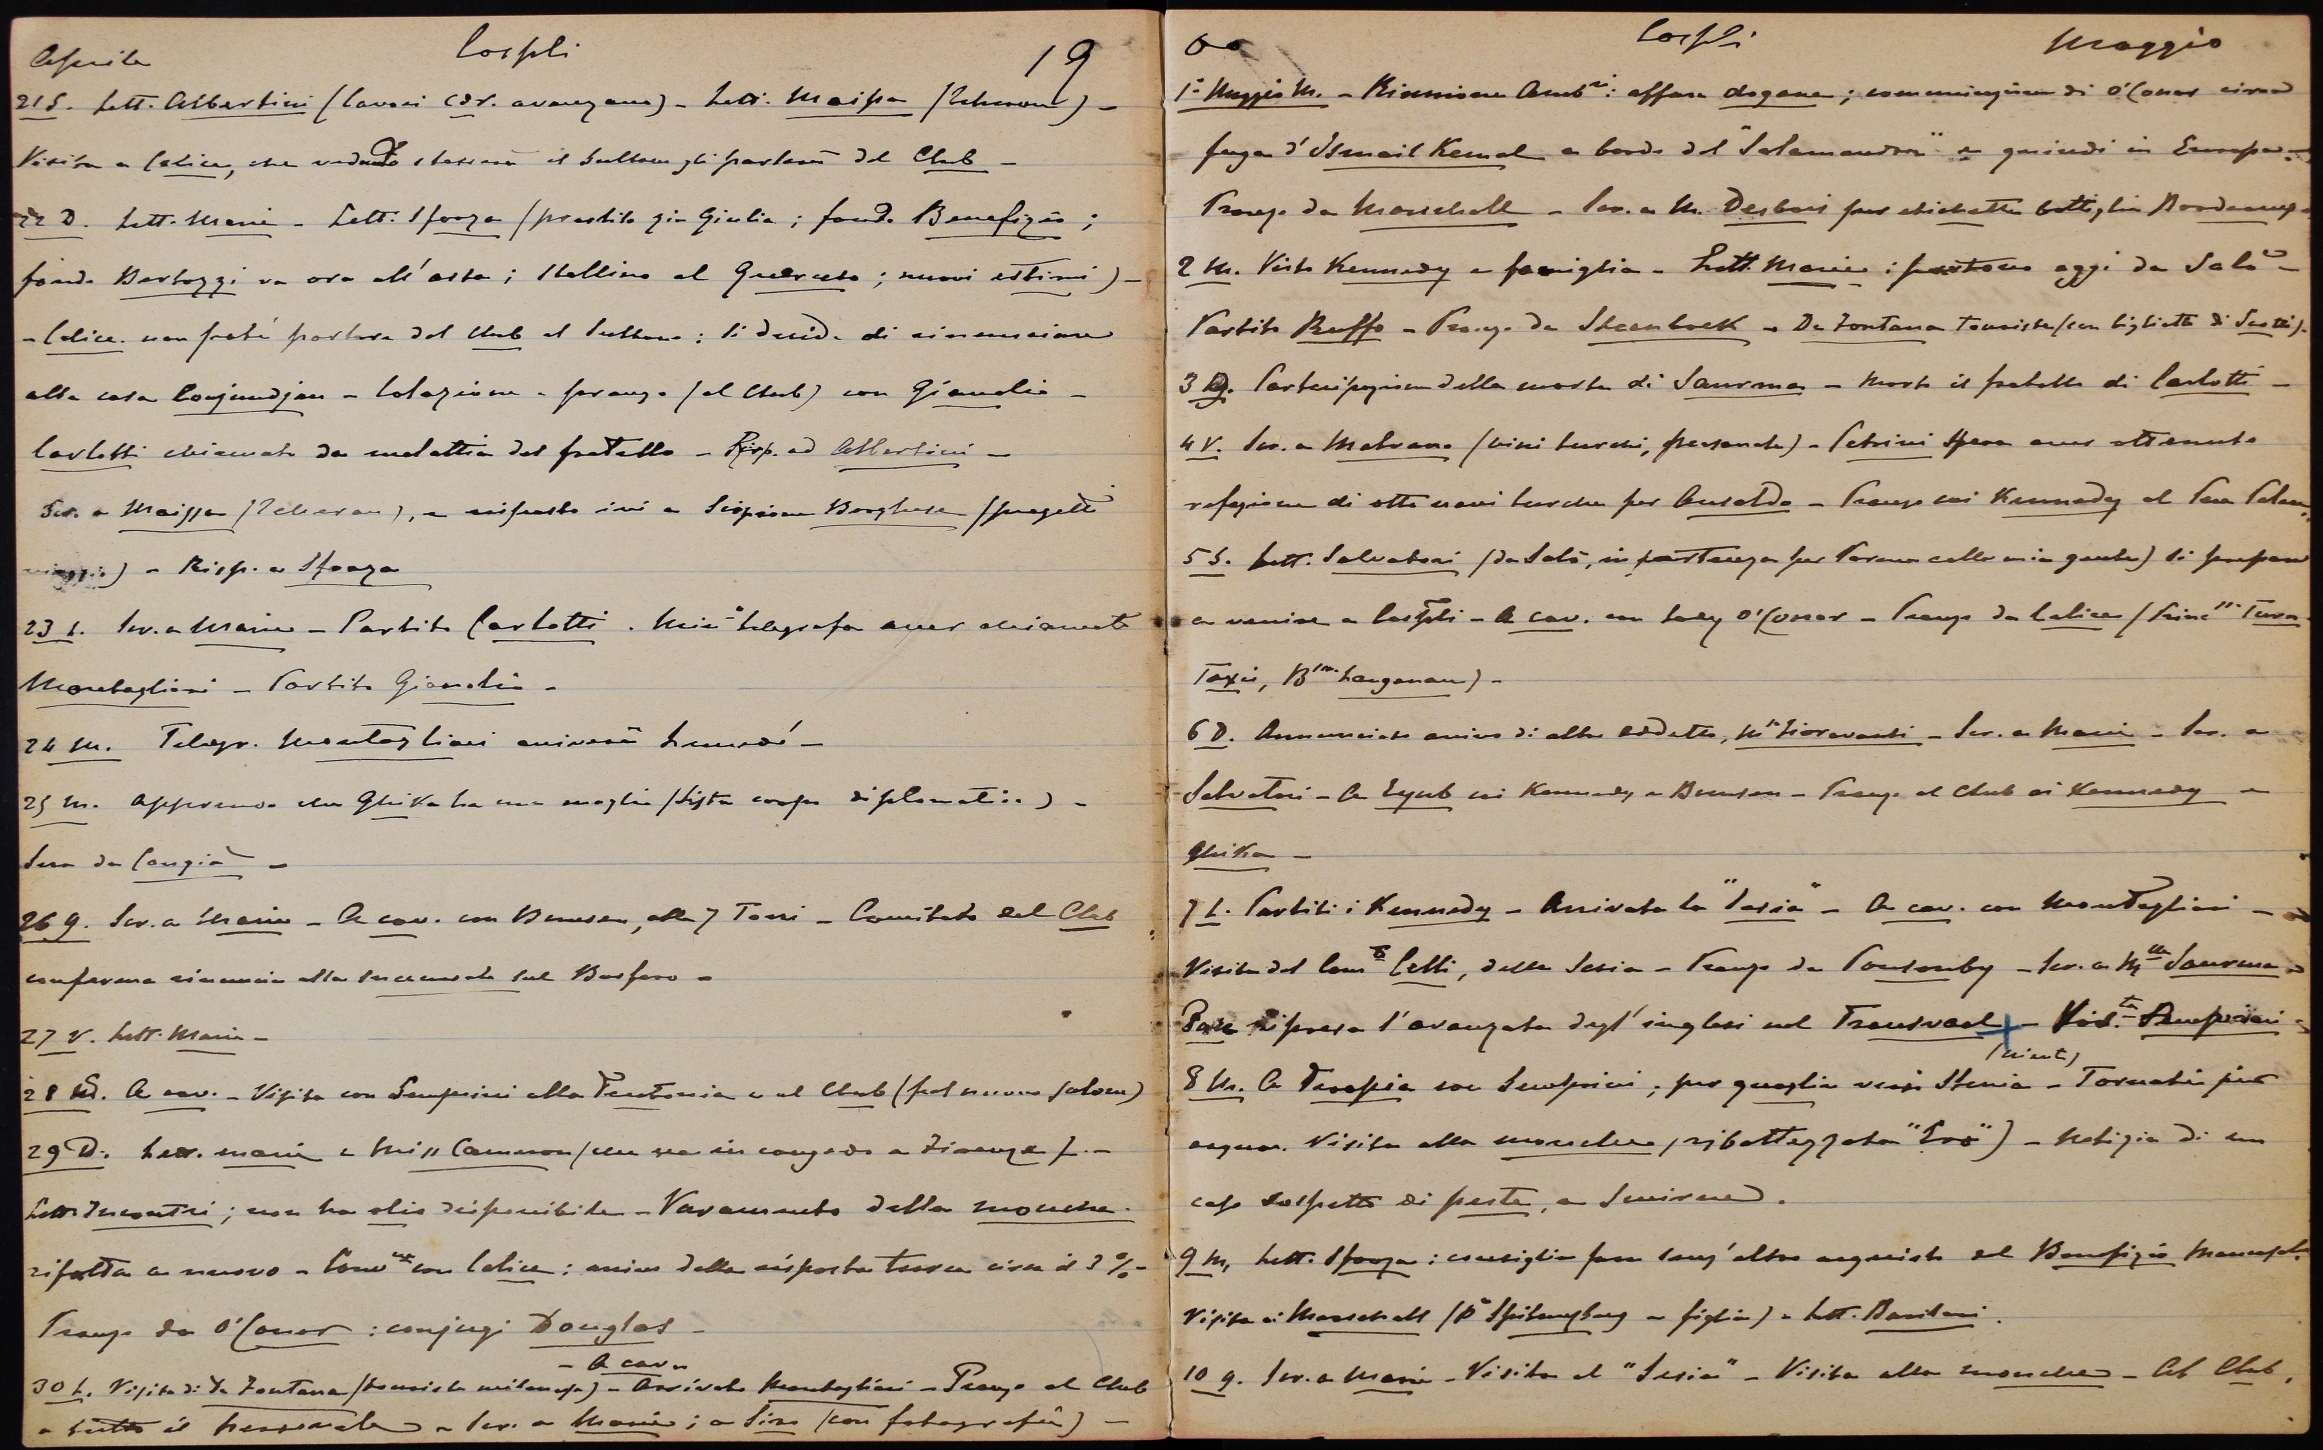 Aprile Cospli 19
21 S. Lett. Albertini (lavori cor. avanzano) - Lett. Maissa (Teheran) -
Visita a Calice, che vedendo stasera il Sultano gli parlerà del Club -
22 D. Lett. Marie - Lett. Sforza (prestito zia Giulia; fondo Benefizio;
fondo Bertozzi va ora all'asta; Stallino al Querceto; nuovi estimi) -
- Calice non poté parlare del Club al Sultano: si decide di rinunciare
alla casa - Colazione e pranzo (al Club) con Gianelia -
Carlotti chiamato da malattia del fratello - Risp. ad Albertini -
Scr. a Maissa (Teheran), e risposto ivi a Scipione Borghese (progetti
viaggio) - Risp. a Sforza
23 L. Scr. a Marie - Partito Carlotti. Min.o telegrafa aver chiamato
Montagliari - Partito Gianelia -
24 M. Telegr. Montagliari arriverà lunedì -
25 M. Apprendo che Ghika ha una moglie (lista corpo diplomatico) -
Sera da Cangià -
26 G. Scr. a Marie - A cav. con Bunsen, alle 7 Torri - Comitato del Club
conferma rinuncia alla succursale sul Bosforo -
27 V. Lett. Marie -
28 S. A cav. - Visita con Semprini alla Teutonia e al Club (pel nuovo salone)
29 D. Lett. Marie e Miss Cameron (che va in congedo a Firenze) -
Lett. Incontri; non ha olio disponibile - Varamento della mouche
rifatta a nuovo - Conv.ne con Calice: arrivo della risposta turca circa il 3% -
Pranzo da O'Conor: conjugi Douglas -
- A cav. -
30 L. Visita di Da Fontana (touriste milanese) - Arrivato Montagliari - Pranzo al Club
a tutto il personale - Scr. a Marie; a Tino (con fotografie) -
Cospli Maggio
1° Maggio M. - Riunione Amb.ri: affare dogane; comunicazione di O'Conor circa
fuga d'Ismail Kemal a bordo del "Salamander" e quindi in Europa -
Pranzo da Marschall - Scr. a M. Desbois per etichette bottiglie Bordeaux -
2 M. Visto Kennedy e famiglia - Lett. Marie: partono oggi da Salò -
Partito Ruffo - Pranzo da Steenbock - Da Fontana touriste (con biglietto di Scotti) -
3 G. Partecipazione della morte di Saurma - Morto il fratello di Carlotti -
4 V. Scr. a Malvano (vini turchi, personale) - Petrini spera aver ottenuto
refezione di otto navi turche per Ansaldo - Pranzo coi Kennedy al Pera Palace
5 S. Lett. Salvatori (da Salò, in partenza per Parma colla mia gente) si prepara
a venire a Cospli - A cav. con Lady O'Conor - Pranzo da Calice (Princ. Turn
Taxis, B.ne Langenau) -
6 D. Annunciato arrivo di altro addetto, M.r Fioravanti - Scr. a Marie - Scr. a
Salvatori - A Eyub coi Kennedy e Bunsen - Pranzo al Club ai Kennedy e
Ghika -
7 L. Partiti i Kennedy - Arrivata la "Sesia" - A cav. con Montagliari -
Visita del Com.te Celli, della Sesia - Pranzo da Ponsonby - Scr. a M.me Saurma -
Pare ripresa l'avanzata degl'inglesi nel Transvaal - Vis.ta Semprini -
(niente)
8 M. A Terapia con Semprini; per quaglie verso Stenia - Tornati per
acqua. Visita alla mouche, ribattezzata "Ero") - Notizia di un
caso sospetto di peste, a Smirne.
9 M. Lett. Sforza: consiglia fare senz'altro acquisto del Benefizio
Visita ai Marschall (P.a e figlia) - Lett. Basilari.
10 G. Scr. a Marie - Visita al "Sesia" - Visita alla mouche - Al Club.